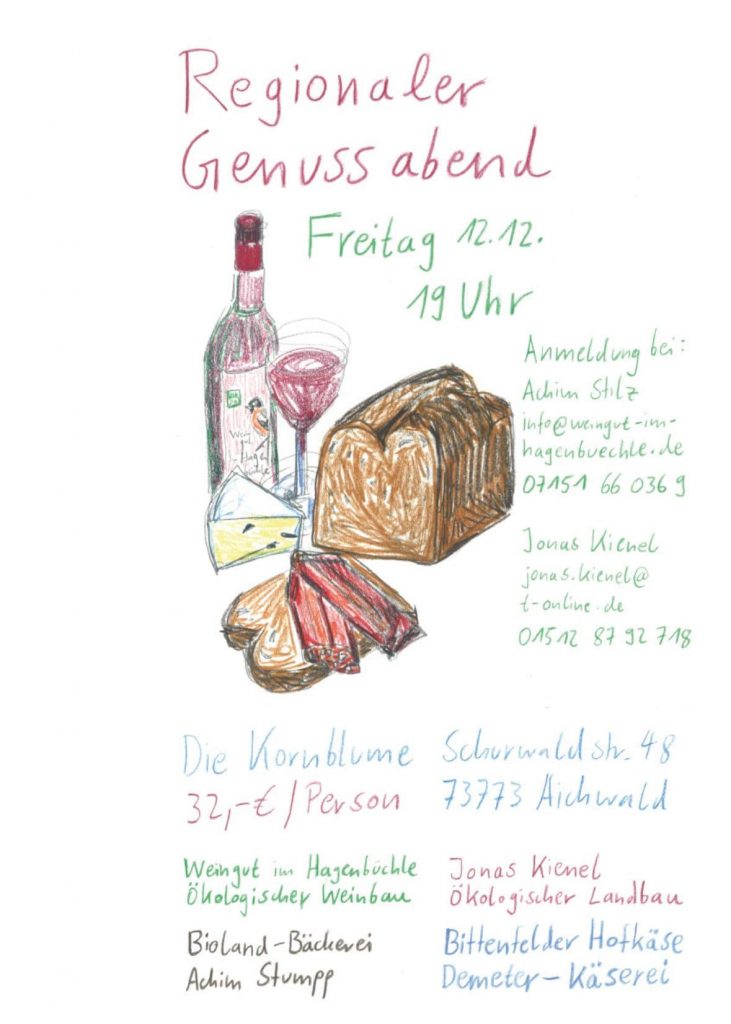 Regionaler
Genussabend
Freitag 12.12.
19 Uhr
Anmeldung bei:
Achim Stilz
info@weingut-im-
hagenbuechle.de
07151 66 036 9
Jonas Kienel
jonas.kienel@
t-online.de
01512 87 92 718
Wein
gut
Die Kornblume
32,-€/Person
Schurwaldstr. 48
73773 Aichwald
Weingut im Hagenbüchle
Ökologischer Weinbau
Jonas Kienel
Ökologischer Landbau
Bioland-Bäckerei
Achim Stumpp
Bittenfelder Hofkäse
Demeter-Käserei